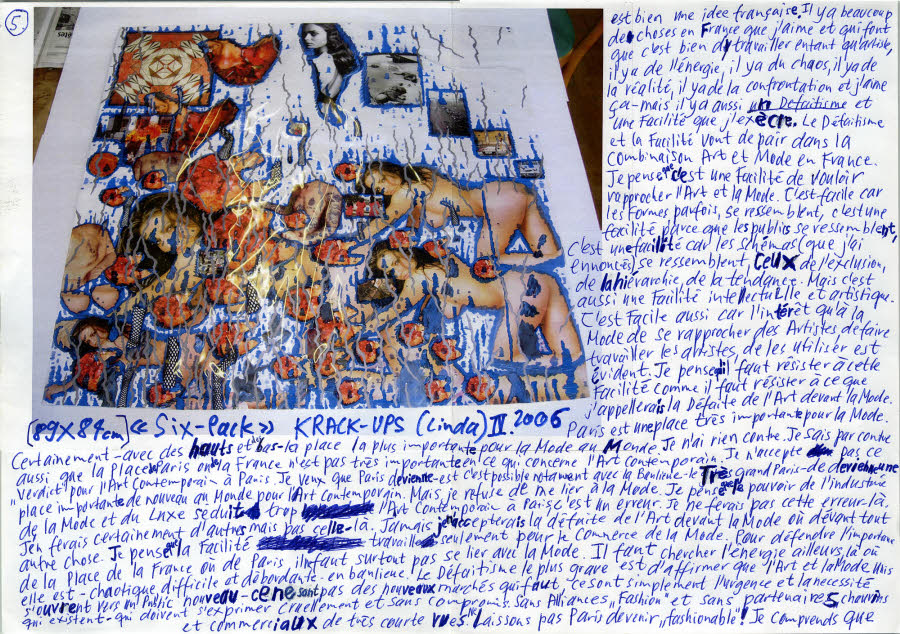 5.
est bien une idée française. Il y a beaucoup
de choses en France que j'aime et qui font
que c'est bien de travailler en tant qu'artiste,
il y a de l'énergie, il y a du chaos, il y a de
la réalité, il y a de la confrontation et j'aime
ça - mais il y a aussi un Défaitisme et
une Facilité que j'exècre. Le Défaitisme
et la Facilité vont de pair dans la
Combinaison Art et Mode en France.
Je pense que c'est une facilité de vouloir
rapprocher l'Art et la Mode. C'est facile car
les Formes parfois, se ressemblent, c'est une
facilité parce que les publics se ressemblent,
c'est une facilité car les schémas (que j'ai
ennoncés) se ressemblent, Ceux de l'exclusion,
de la hiérarchie, de la tendance. Mais c'est
aussi une Facilité intellectuelle et artistique.
C'est Facile aussi car l'intérêt qu'a la
Mode de se rapprocher des Artistes, de faire
travailler les artistes, de les utiliser est
évident. Je pense qu'il faut résister à cette
Facilité comme il faut résister à ce que
j'appellerais la Défaite de l'Art devant la Mode.
Paris est une place très importante pour la Mode.
[89 x 84 cm] « Six-Pack » KRACK-UPS (Linda) II. 2006
Certainement - avec des hauts et des bas - la place la plus importante pour la Mode au Monde. Je n'ai rien contre. Je sais par contre
aussi que la Place de Paris ou de la France n'est pas très importante en ce qui concerne l'Art Contemporain. Je n'accepte pas ce
"Verdict" pour l'Art Contemporain à Paris. Je veux que Paris devienne - et c'est possible notament avec la Banlieue - le Très grand Paris - de devenir une
place importante de nouveau au Monde pour l'Art Contemporain. Mais je refuse de me lier à la Mode. Je pense que le pouvoir de l'industrie
de la Mode et du Luxe séduit trop l'Art Contemporain à Paris. C'est un Erreur. Je ne ferais pas cette erreur-là.
J'en ferais certainement d'autres mais pas celle-là. Jamais j'accepterais la défaite de l'Art devant la Mode ou devant tout
autre chose. Je pense que la Facilité travaille seulement pour le Commerce de la Mode. Pour défendre l'importance
de la Place de la France ou de Paris, il faut surtout pas se lier avec la Mode. Il faut chercher l'énergie ailleurs, là où
elle est - chaotique, difficile et débordante - en banlieue. Le Défaitisme le plus grave est d'affirmer que l'Art et la Mode unis
s'ouvrent vers un Public nouveau - ce ne sont pas des nouveaux marchés qui faut, ce sont simplement l'urgence et la nécessité
qui existent - qui doivent s'exprimer cruellement et sans compromis. Sans Alliances "Fashion" et sans partenaires
et commerciaux de très courte vues. Ne laissons pas Paris devenir "fashionable"! Je comprends que